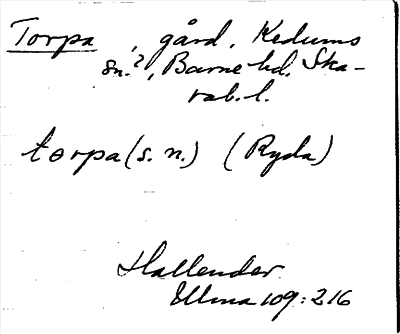 Torpa, gård, Kedums
sn.?, Barne hd. Ska-
rab. l.
torpa (s. n.) (Ryda)
Hallender
Ullma 109:216